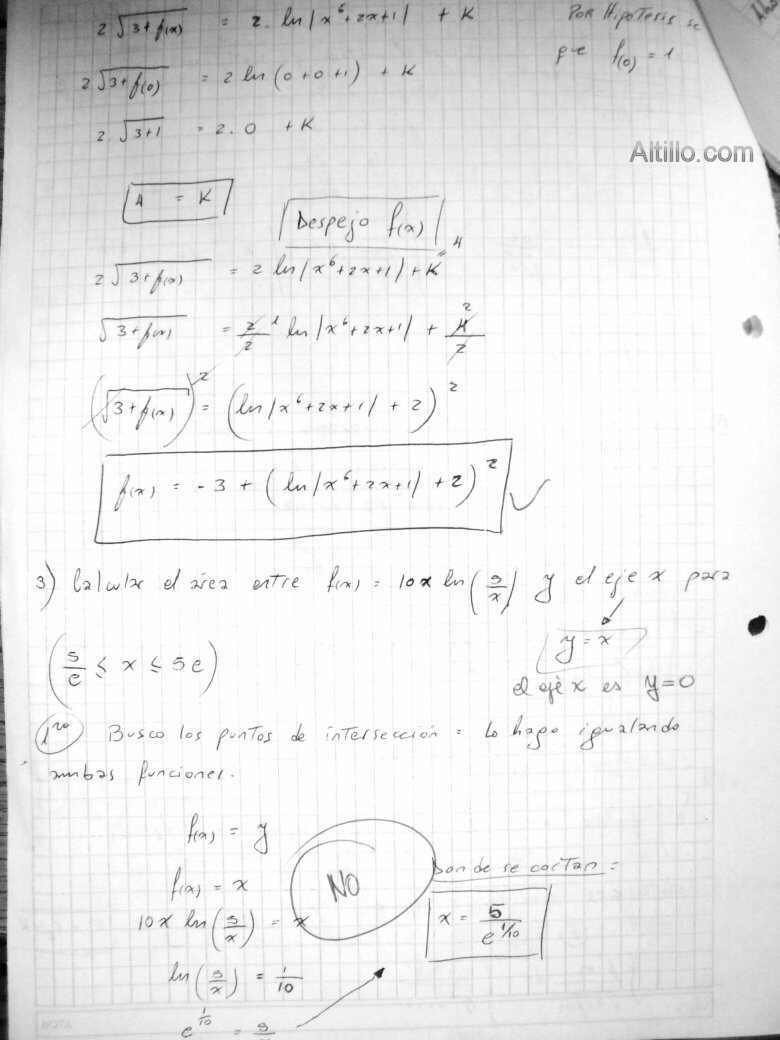 2 √(3+f(x)) = 2. ln|x⁶+2x+1| + K
Por Hipotesis se
que f(0) = 1
2 √(3+f(0)) = 2 ln(0+0+1) + K
2. √(3+1) = 2.0 + K
Altillo.com
4 = K
Despejo f(x)
2 √(3+f(x)) = 2 ln|x⁶+2x+1| + K = 4
√(3+f(x)) = 2/2 1 ln|x⁶+2x+1| + 4/2 2
(√(3+f(x)))² = (ln|x⁶+2x+1| + 2)²
f(x) = -3 + (ln|x⁶+2x+1| + 2)² ✓
3) Calcular el área entre f(x) = 10x ln(5/x) y el eje x para
y = x
(5/e ≤ x ≤ 5e)
el eje x es y=0
1ro Busco los puntos de intersección = Lo hago igualando
ambas funciones.
f(x) = y
f(x) = x
NO
Donde se cortan =
10x ln(5/x) = x
x = 5/e^(1/10)
ln(5/x) = 1/10
e^(1/10) = 5